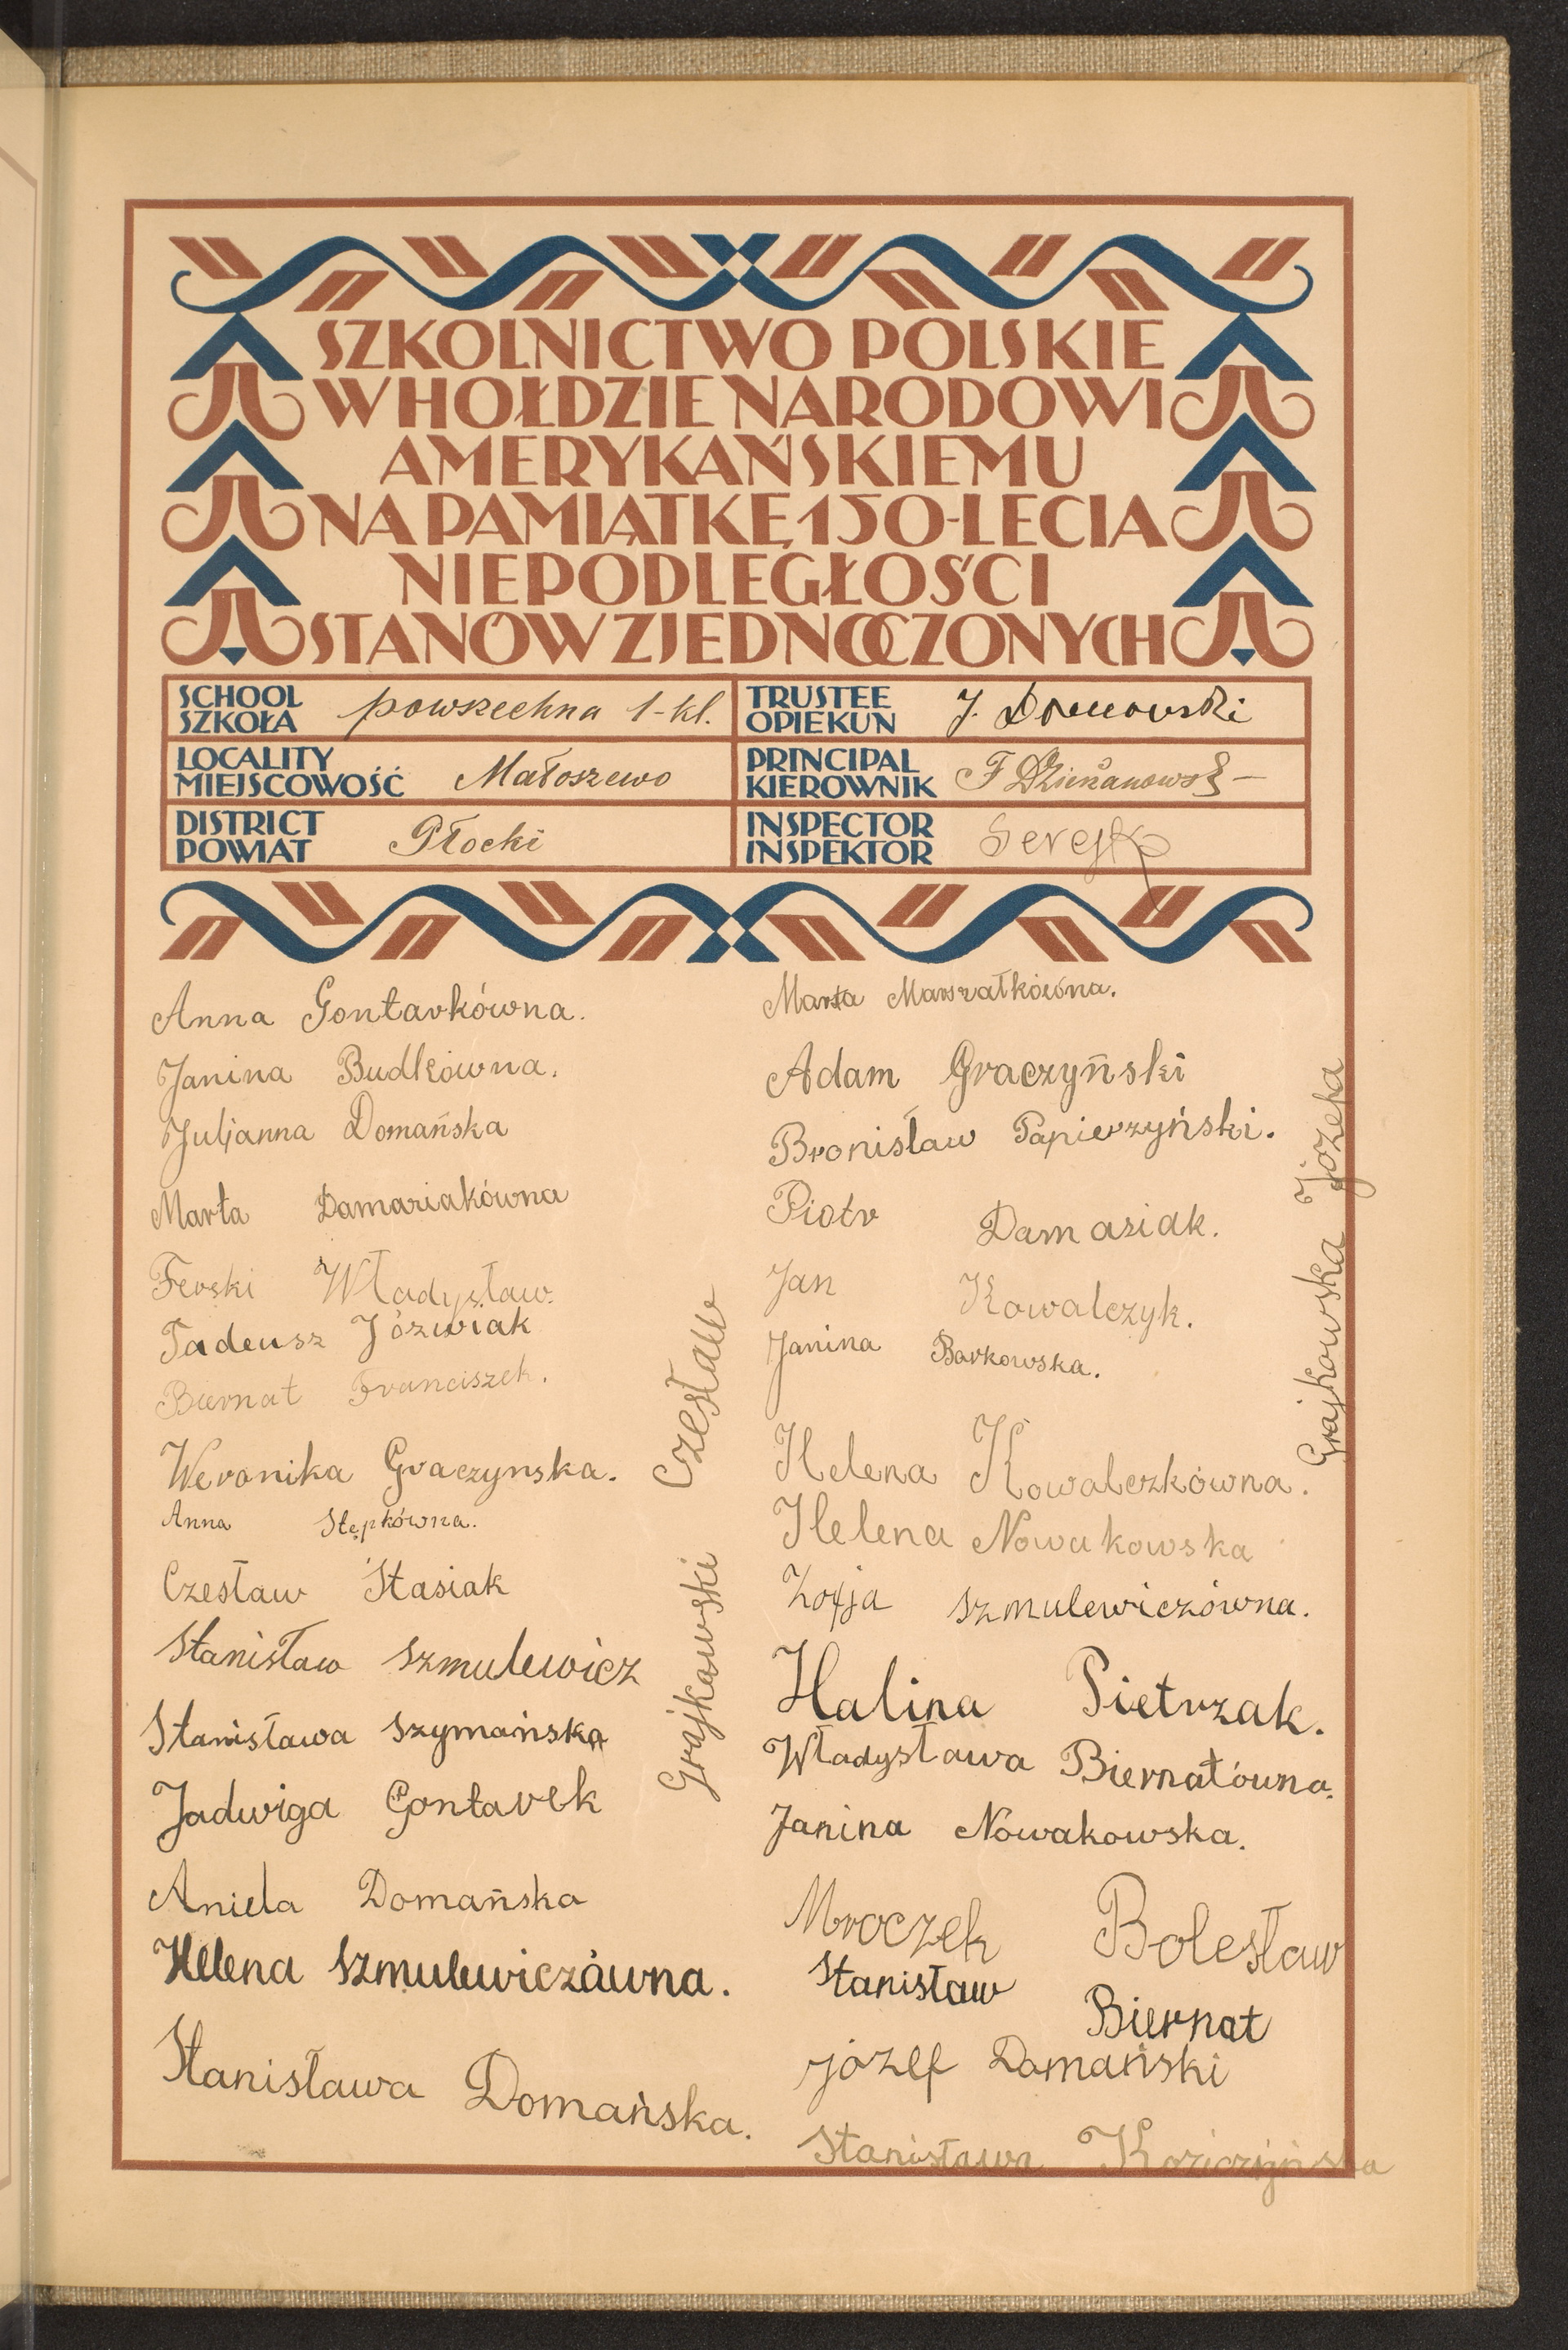 SZKOLNICTWO POLSKIE
W HOŁDZIE NARODOWI
AMERYKAŃSKIEMU
NA PAMIĄTKĘ 150-LECIA
NIEPODLEGŁOŚCI
STANÓW ZJEDNOCZONYCH
SCHOOL
SZKOŁA powszechna 1-kl.
TRUSTEE
OPIEKUN J.
LOCALITY
MIEJSCOWOŚĆ Małoszewo
PRINCIPAL
KIEROWNIK F Dzierżanowski
DISTRICT
POWIAT Płocki
INSPECTOR
INSPEKTOR Serejko
Anna Gontarkówna.
Janina Budkówna.
Juljanna Domańska
Marta Damaziakówna
Ferski Władysław.
Tadeusz Jóźwiak
Biernat Franciszek.
Weronika Graczynska.
Anna Stępkówna.
Czesław Stasiak
Stanisław Szmulewicz
Stanisława Szymańska
Jadwiga Gontarek
Aniela Domańska
Helena Szmulewiczówna.
Stanisława Domańska.
Grajkowski Czesław
Marta Marszałkówna.
Adam Graczyński
Bronisław Papierzyński.
Piotr Damaziak.
Jan Kowalczyk.
Janina Borkowska.
Helena Kowalczkówna.
Helena Nowakowska
Zofja Szmulewiczówna.
Halina Pietrzak.
Władysława Biernatówna.
Janina Nowakowska.
Mroczek Bolesław
Stanisław Biernat
józef Domański
Stanisława
Grajkowska Józefa